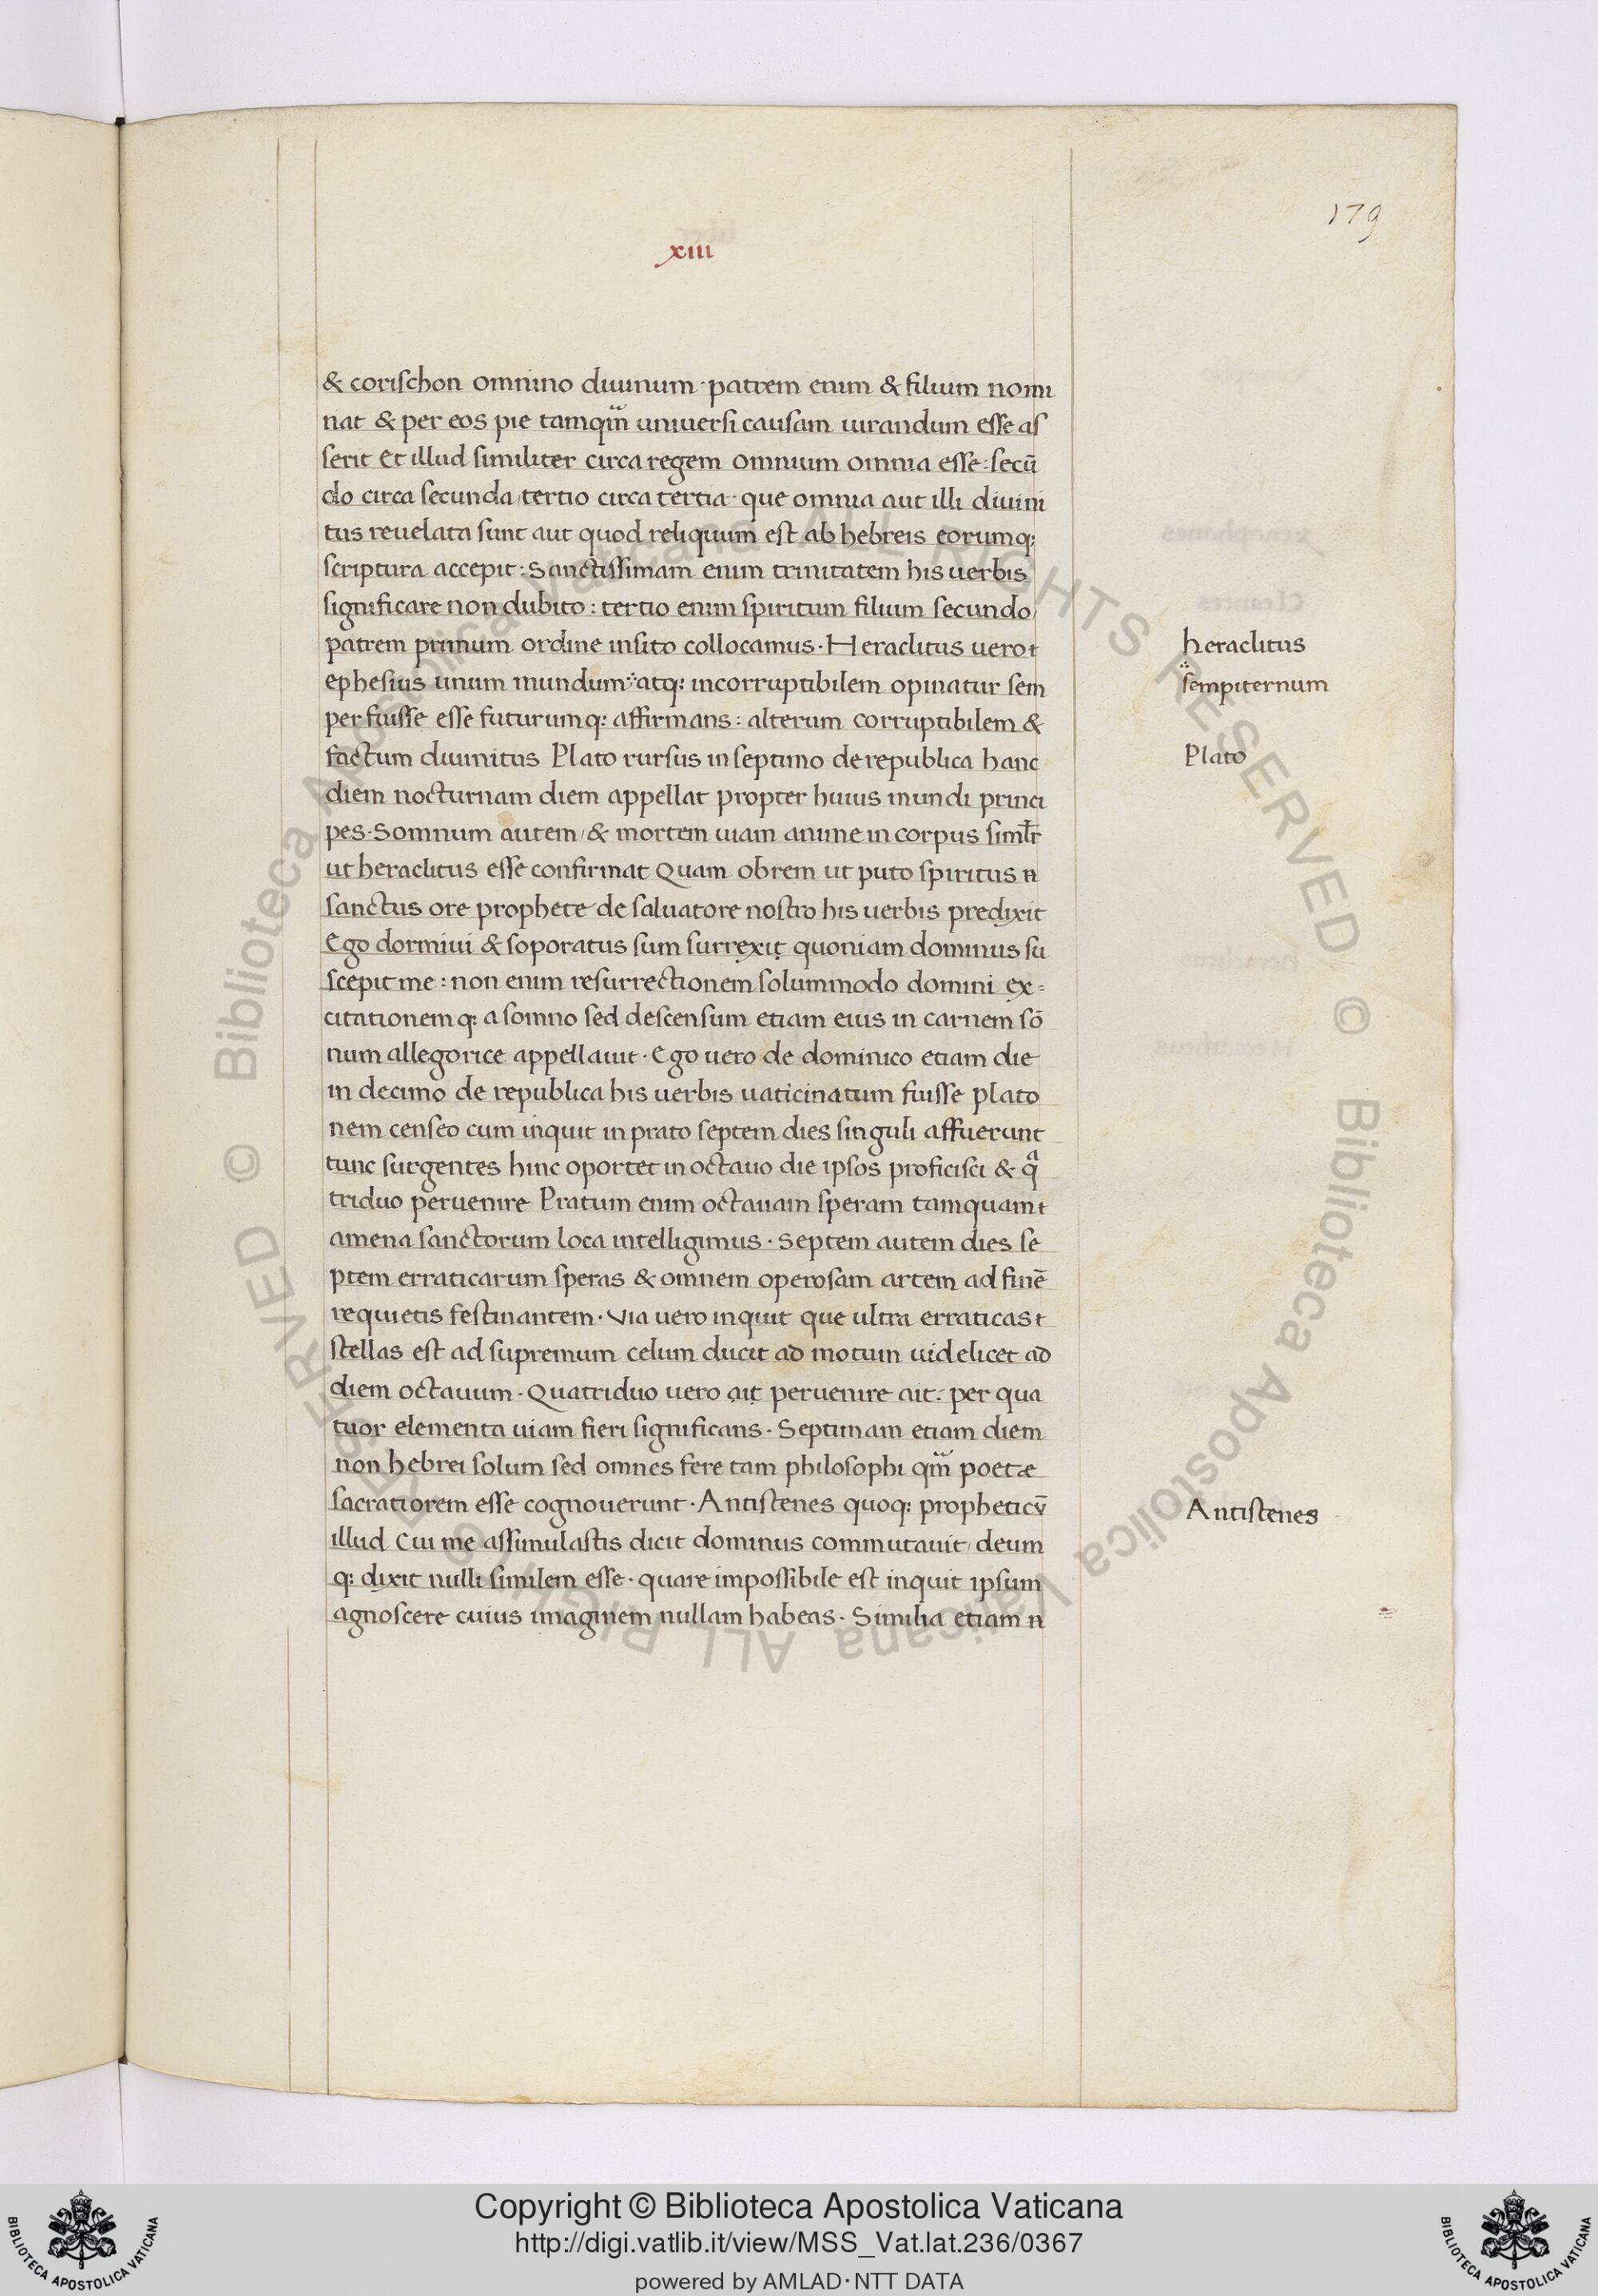 179
xiii
& corischon omnino diuinum · patrem enim & filium nomi
nat & per eos pie tamqm̃ uniuersi causam iurandum esse as
serit Et illud similiter circa regem omnium omnia esse : secũ
do circa secunda / tertio circa tertia · que omnia aut illi diuini
tus reuelata sunt aut quod reliquum est ab hebreis eorumq;
scriptura accepit : Sanctissimam enim trinitatem his uerbis
significare non dubito : tertio enim spiritum filium secundo /
patrem primum ordine insito collocamus · Heraclitus uero
heraclitus
ephesius unum mundum atq; incorruptibilem opinatur sem
sempiternum
per fuisse esse futurumq; affirmans : alterum corruptibilem &
factum diuinitus Plato rursus in septimo de republica hanc
Plato
diem nocturnam diem appellat propter huius mundi princi
pes · Somnum autem / & mortem uiam anime in corpus simlr̃
ut heraclitus esse confirmat Quam obrem ut puto spiritus
sanctus ore prophete de saluatore nostro his uerbis predixit
Ego dormiui & soporatus sum surrexit quoniam dominus su
scepit me : non enim resurrectionem solummodo domini ex=
citationemq; a somno sed descensum etiam eius in carnem sō
num allegorice appellauit · Ego uero de dominico etiam die
in decimo de republica his uerbis uaticinatum fuisse plato
nem censeo cum inquit in prato septem dies singuli affuerunt
tunc surgentes hinc oportet in octauo die ipsos proficisci & qᵃ
triduo peruenire Pratum enim octauam speram tamquam
amena sanctorum loca intelligimus · Septem autem dies se
ptem erraticarum speras & omnem operosam artem ad finē
requietis festinantem · Via uero inquit que ultra erraticas
stellas est ad supremum celum ducit ad motum uidelicet ad
diem octauum · Quatriduo uero ait peruenire ait : per qua
tuor elementa uiam fieri significans · Septimam etiam diem
non hebrei solum sed omnes fere tam philosophi qm̃ poetæ
sacratiorem esse cognouerunt · Antistenes quoq; propheticv̄
Antistenes
illud Cui me assimulastis dicit dominus commutauit / deum
q; dixit nulli similem esse · quare impossibile est inquit ipsum
agnoscere cuius imaginem nullam habeas · Similia etiam
© Biblioteca Apostolica Vaticana ALL RIGHTS RESERVED
© Biblioteca Apostolica Vaticana ALL RIGHTS RESERVED
Copyright © Biblioteca Apostolica Vaticana
http://digi.vatlib.it/view/MSS_Vat.lat.236/0367
powered by AMLAD·NTT DATA
BIBLIOTECA APOSTOLICA VATICANA
BIBLIOTECA APOSTOLICA VATICANA